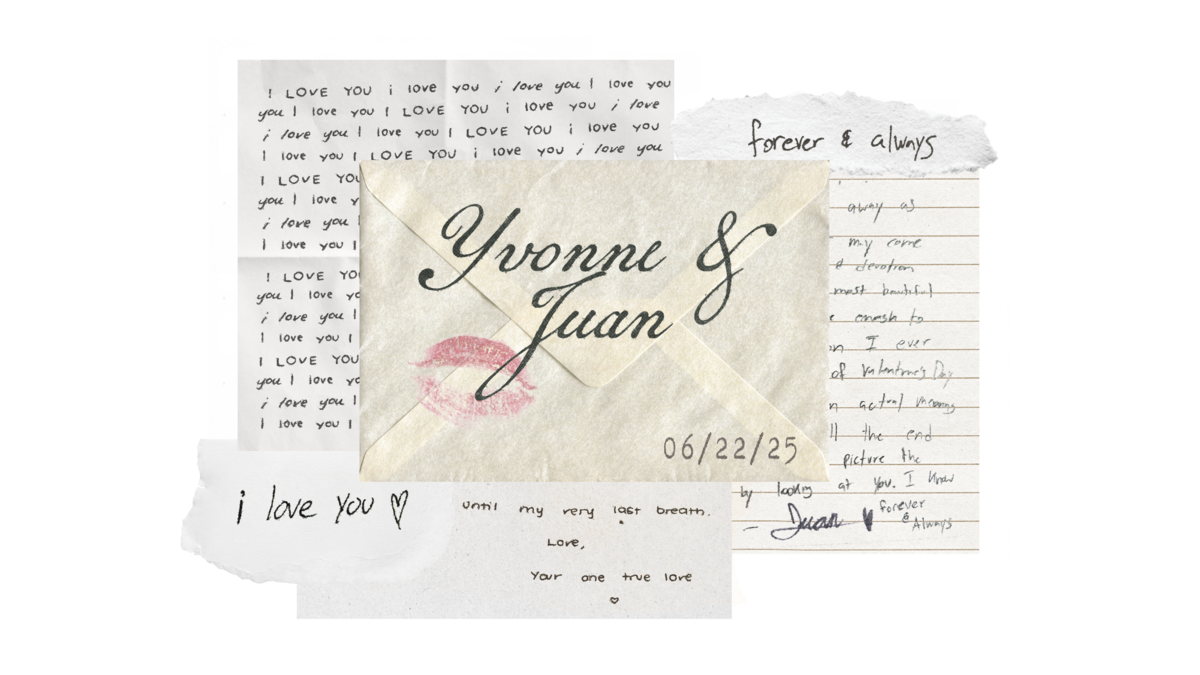 I LOVE YOU i love you i love you I love you
you I love you I LOVE YOU i love you i love
i love you I love you I LOVE YOU i love you
I love you I LOVE YOU i love you i love you
I LOVE YOU
you I love
i love you I
I love you I
I LOVE YOU
you I love
i love you I
I love you I
I LOVE YOU
you I love
i love you I
I love you I
forever & always
away as
my come
& devotion
most beautiful
to
I ever
of Valentine's Day
actual meaning
the end
picture the
by looking at you. I know
– Juan
forever
&
Always
Yvonne &
Juan
06/22/25
i love you ♡
until my very last breath.
Love,
Your one true love
♡